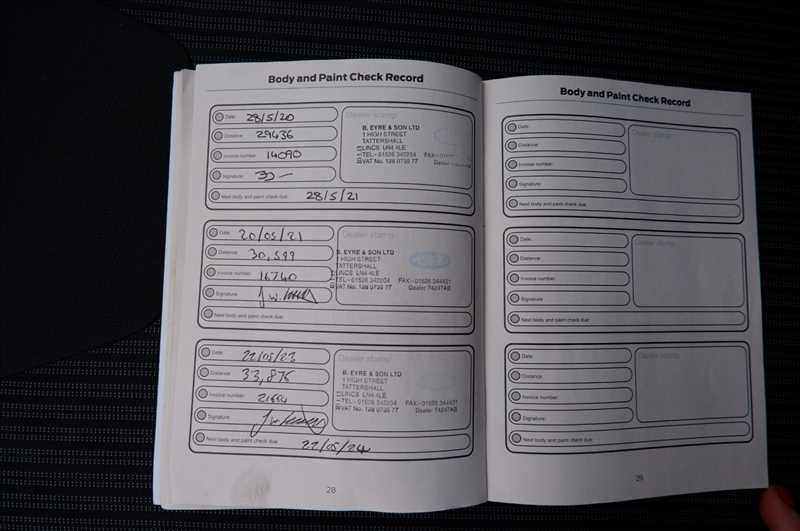 Body and Paint Check Record
Date: 28/5/20
Distance: 29436
Invoice number: 14090
Signature:
Next body and paint check due: 28/5/21
Dealer stamp
B. EYRE & SON LTD
1 HIGH STREET
TATTERSHALL
LINCS LN4 4LE
TEL:- 01526 342204 FAX:-
VAT No. 128 0738 77 Dealer
Date: 20/05/21
Distance: 30,599
Invoice number: 16740
Signature:
Next body and paint check due:
Dealer stamp
B. EYRE & SON LTD
1 HIGH STREET
TATTERSHALL
LINCS LN4 4LE
TEL:- 01526 342204 FAX:- 01526 344431
VAT No. 128 0738 77 Dealer 74247AB
Date: 22/05/23
Distance: 33,875
Invoice number:
Signature:
Next body and paint check due: 22/05/24
Dealer stamp
B. EYRE & SON LTD
1 HIGH STREET
TATTERSHALL
LINCS LN4 4LE
TEL:- 01526 342204 FAX:- 01526 344431
VAT No. 128 0738 77 Dealer 74247AB
28
Body and Paint Check Record
Date:
Distance:
Invoice number:
Signature:
Next body and paint check due:
Dealer stamp
Date:
Distance:
Invoice number:
Signature:
Next body and paint check due:
Dealer stamp
Date:
Distance:
Invoice number:
Signature:
Next body and paint check due:
Dealer stamp
29